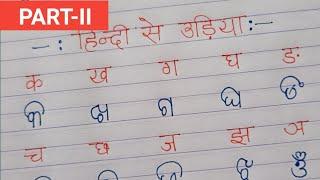 PART-II
-: हिन्दी से उड़िया:-
क ख ग घ ङ
କ ଖ ଗ ଘ ଙ
च छ ज झ ञ